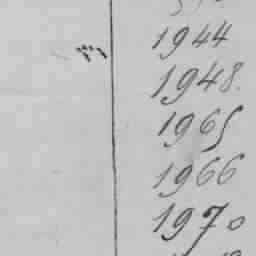 1944
1948.
1965
1966
1970